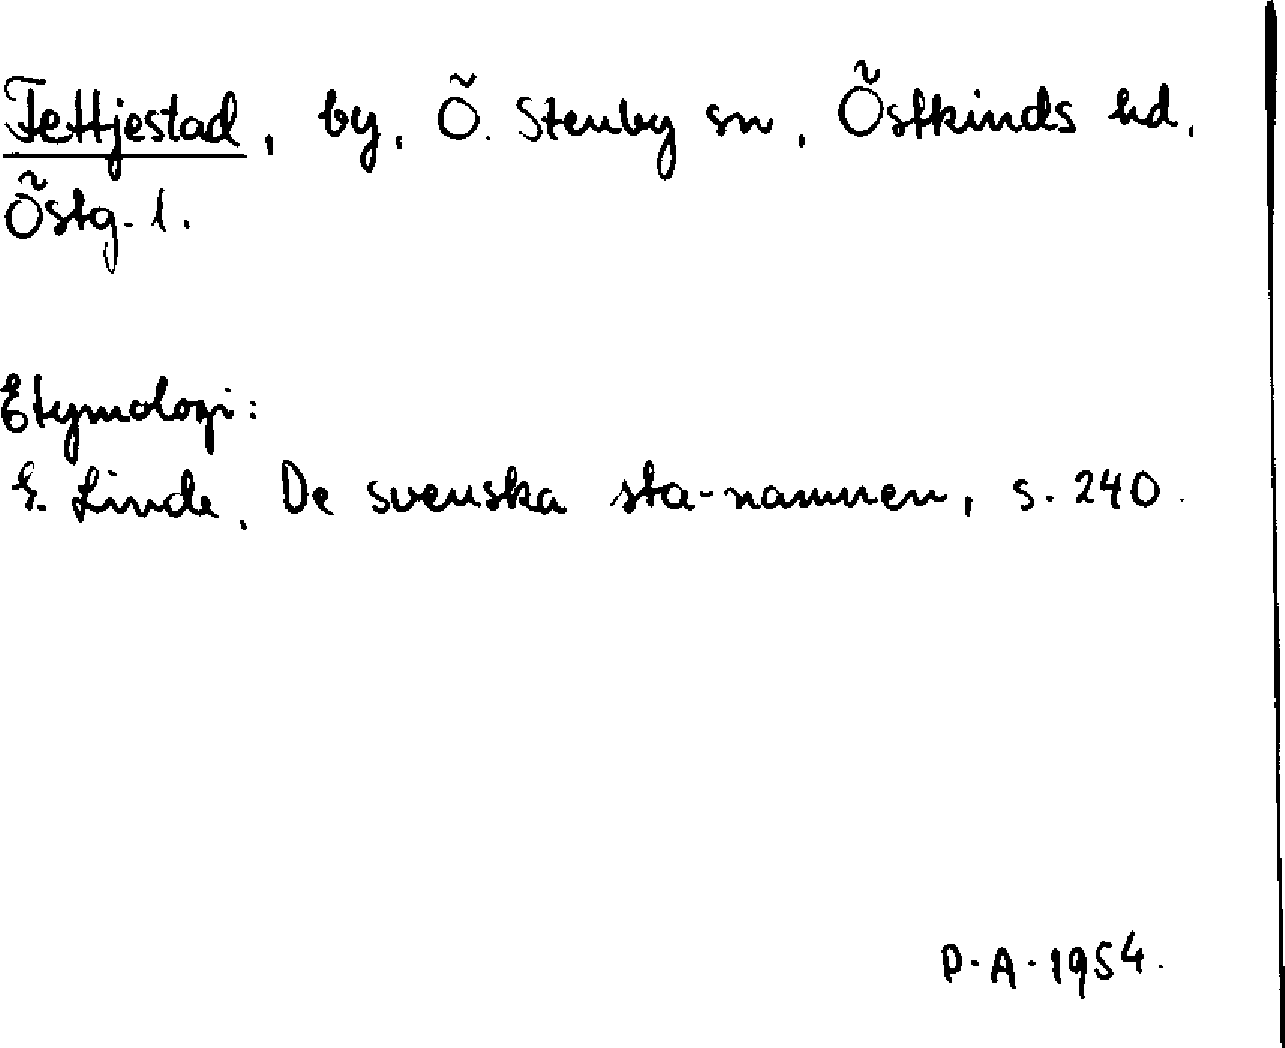 Tettjestad, by, Ö. Stenby sn, Östkinds hd,
Östg. l.
Etymologi:
G. Linde, De svenska sta-namnen, s. 240.
P.A. 1954.